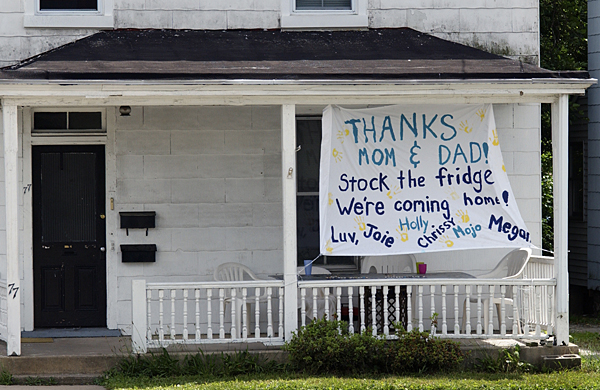 THANKS
MOM & DAD!
Stock the fridge
We're coming home!
Luv, Joie Holly Chrissy Mojo Megan
77
77